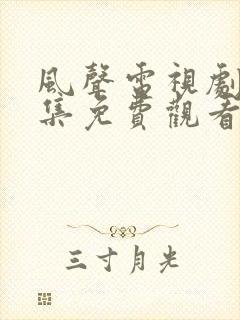 風聲雷視劇
集免費觀看
三寸月光